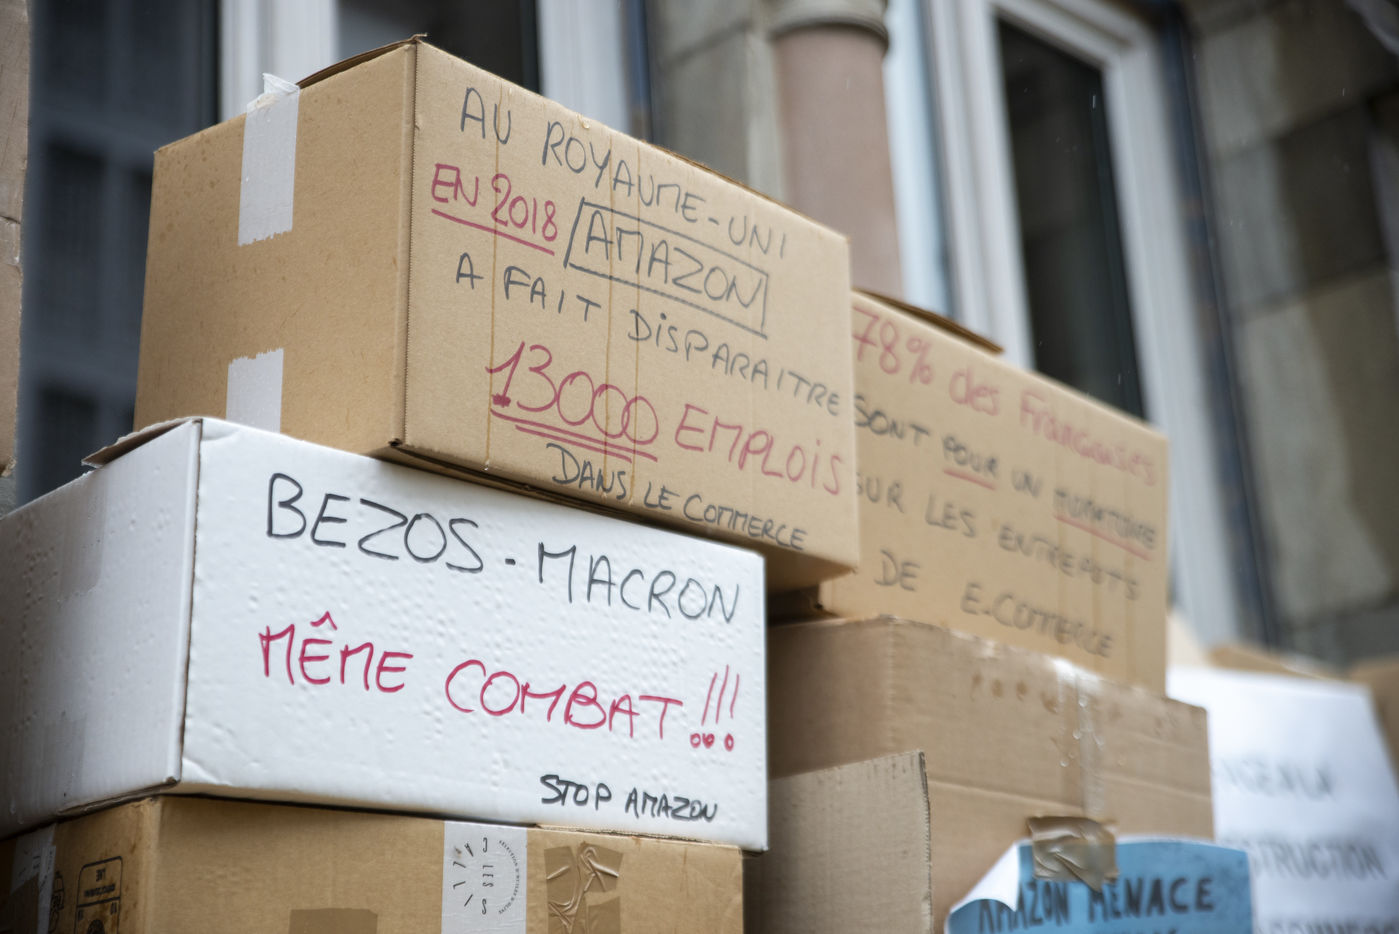 AU ROYAUME-UNI
EN 2018 AMAZON
A FAIT DISPARAITRE
13000 EMPLOIS
DANS LE COMMERCE
78% des Françaises
SONT POUR UN MORATOIRE
SUR LES ENTREPOTS
DE E.COMMERCE
BEZOS - MACRON
MÊME COMBAT !!!
STOP AMAZON
AMAZON MENACE